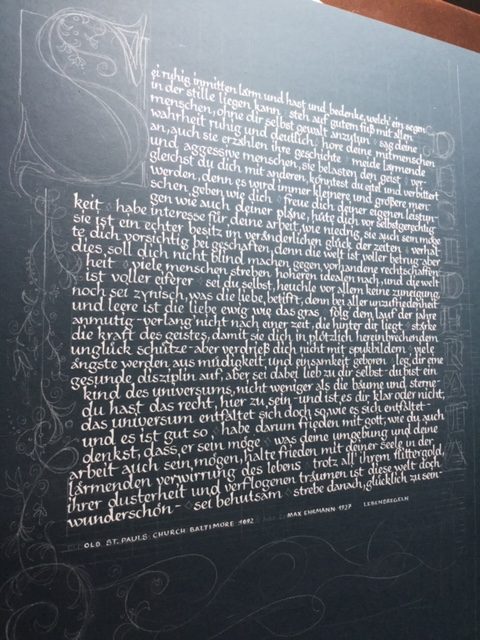 S
ei ruhig inmitten lärm und hast und bedenke, welch' ein segen
in der stille liegen kann steh auf gutem fuß mit allen
menschen, ohne dir selbst gewalt anzutun sag deine
wahrheit ruhig und deutlich höre deine mitmenschen
an, auch sie erzählen ihre geschichte meide lärmende
und aggessive menschen, sie belasten den geist ver-
gleichst du dich mit anderen, könntest du eitel und verbittert
werden, denn es wird immer kleinere und größere men-
schen geben wie dich freue dich deiner eigenen leistun-
gen wie auch deiner pläne, hüte dich vor selbstgerechtig
keit habe interesse für deine arbeit, wie niedrig, sie auch sein möge
sie ist ein echter besitz im veränderlichen glück der zeiten verhal-
te, dich vorsichtig bei geschäften, denn die welt ist voller betrug aber
dies soll dich nicht blind machen gegen vorhandene rechtschaffen
heit viele menschen streben höheren idealen nach, und die welt
ist voller eiferer sei du selbst, heuchle vor allem keine zuneigung,
noch sei zynisch, was die liebe, betifft, denn bei aller unzufriedenheit
und leere ist die liebe ewig wie das gras folg dem lauf der jahre
anmutig - verlang nicht nach einer zeit, die hinter dir liegt stärke
die kraft des geistes, damit sie dich in plötzlich hereinbrechendem
unglück schütze - aber verdrieß dich nicht mit spukbildern viele
ängste werden aus müdigkeit und einsamkeit geboren leg dir eine
gesunde disziplin auf, aber sei dabei lieb zu dir selbst - du bist ein
kind des universums, nicht weniger als die bäume und sterne -
du hast das recht, hier zu sein - und ist es dir klar oder nicht,
das universum entfaltet sich doch so, wie es sich entfaltet -
und es ist gut so, habe darum frieden mit gott, wie du auch
denkst, dass er sein möge was deine umgebung und deine
arbeit auch sein mögen, halte frieden mit deiner seele in der
lärmenden verwirrung des lebens trotz all ihrem flittergold,
ihrer dusterheit und verflogenen träumen ist diese welt doch
wunderschön - sei behutsam strebe danach, glücklich zu sein -
OLD ST. PAULS CHURCH BALTIMORE 1692 MAX EHRMANN 1927 LEBENSREGELN
DESIDERATA